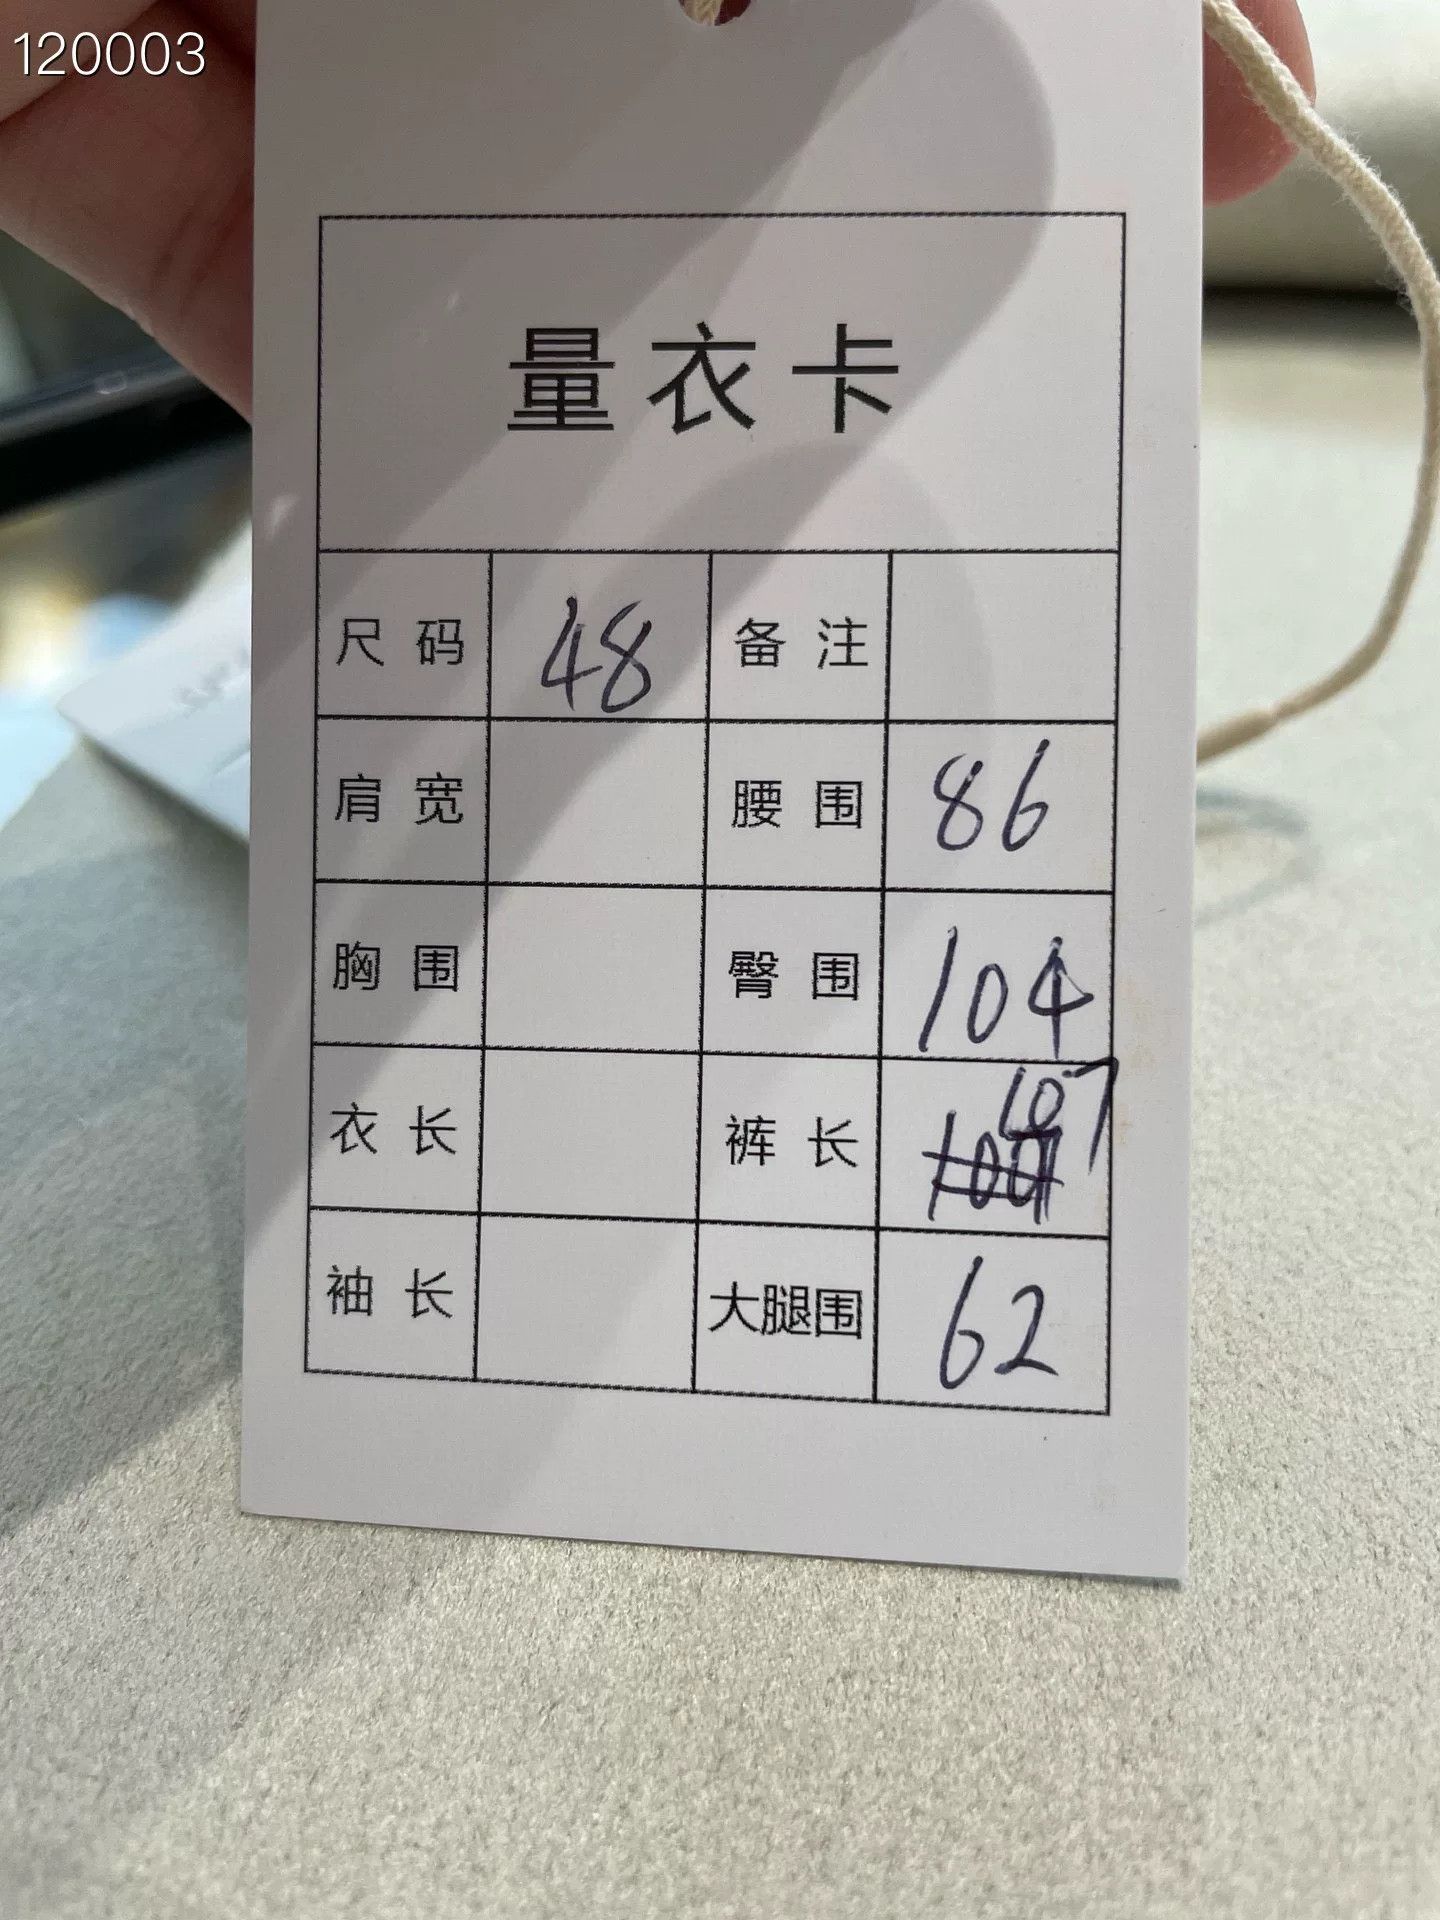 120003
量衣卡
尺码 48 备注
肩宽 腰围 86
胸围 臀围 104
衣长 裤长 107
袖长 大腿围 62